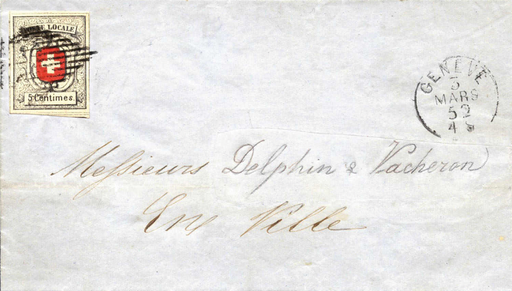 POSTE LOCALE
5 Centimes
GENÈVE
3
MARS
52
4 S
Messieurs Delphin & Vacheron
En Ville